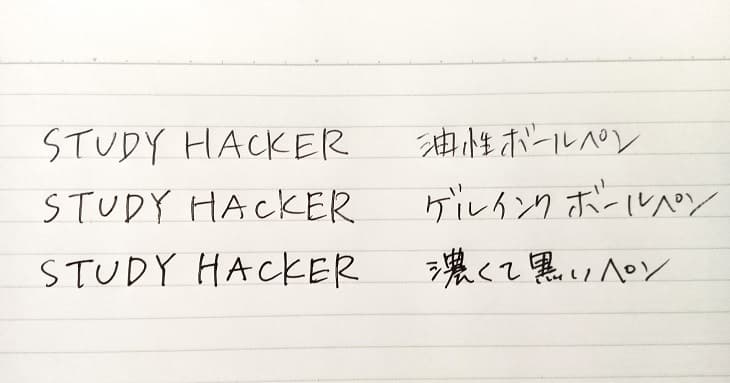 STUDY HACKER 油性ボールペン
STUDY HACKER ゲルインクボールペン
STUDY HACKER 濃くて黒いペン